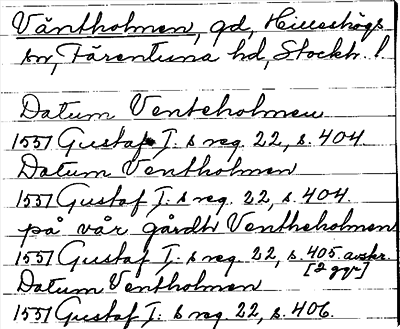 Väntholmen, gd, Hilleshögs
sn, Färentuna hd, Stockh. l.
Datum Venteholmen
1551 Gustaf I: s reg. 22, s. 404.
Datum Ventholmen
1551 Gustaf I: s reg. 22, s. 404
på vår gårdh Ventheholmen
1551 Gustaf I: s reg. 22, s. 405 avskr.
[2 ggr]
Datum Ventholmen
1551 Gustaf I: s reg. 22, s. 406.